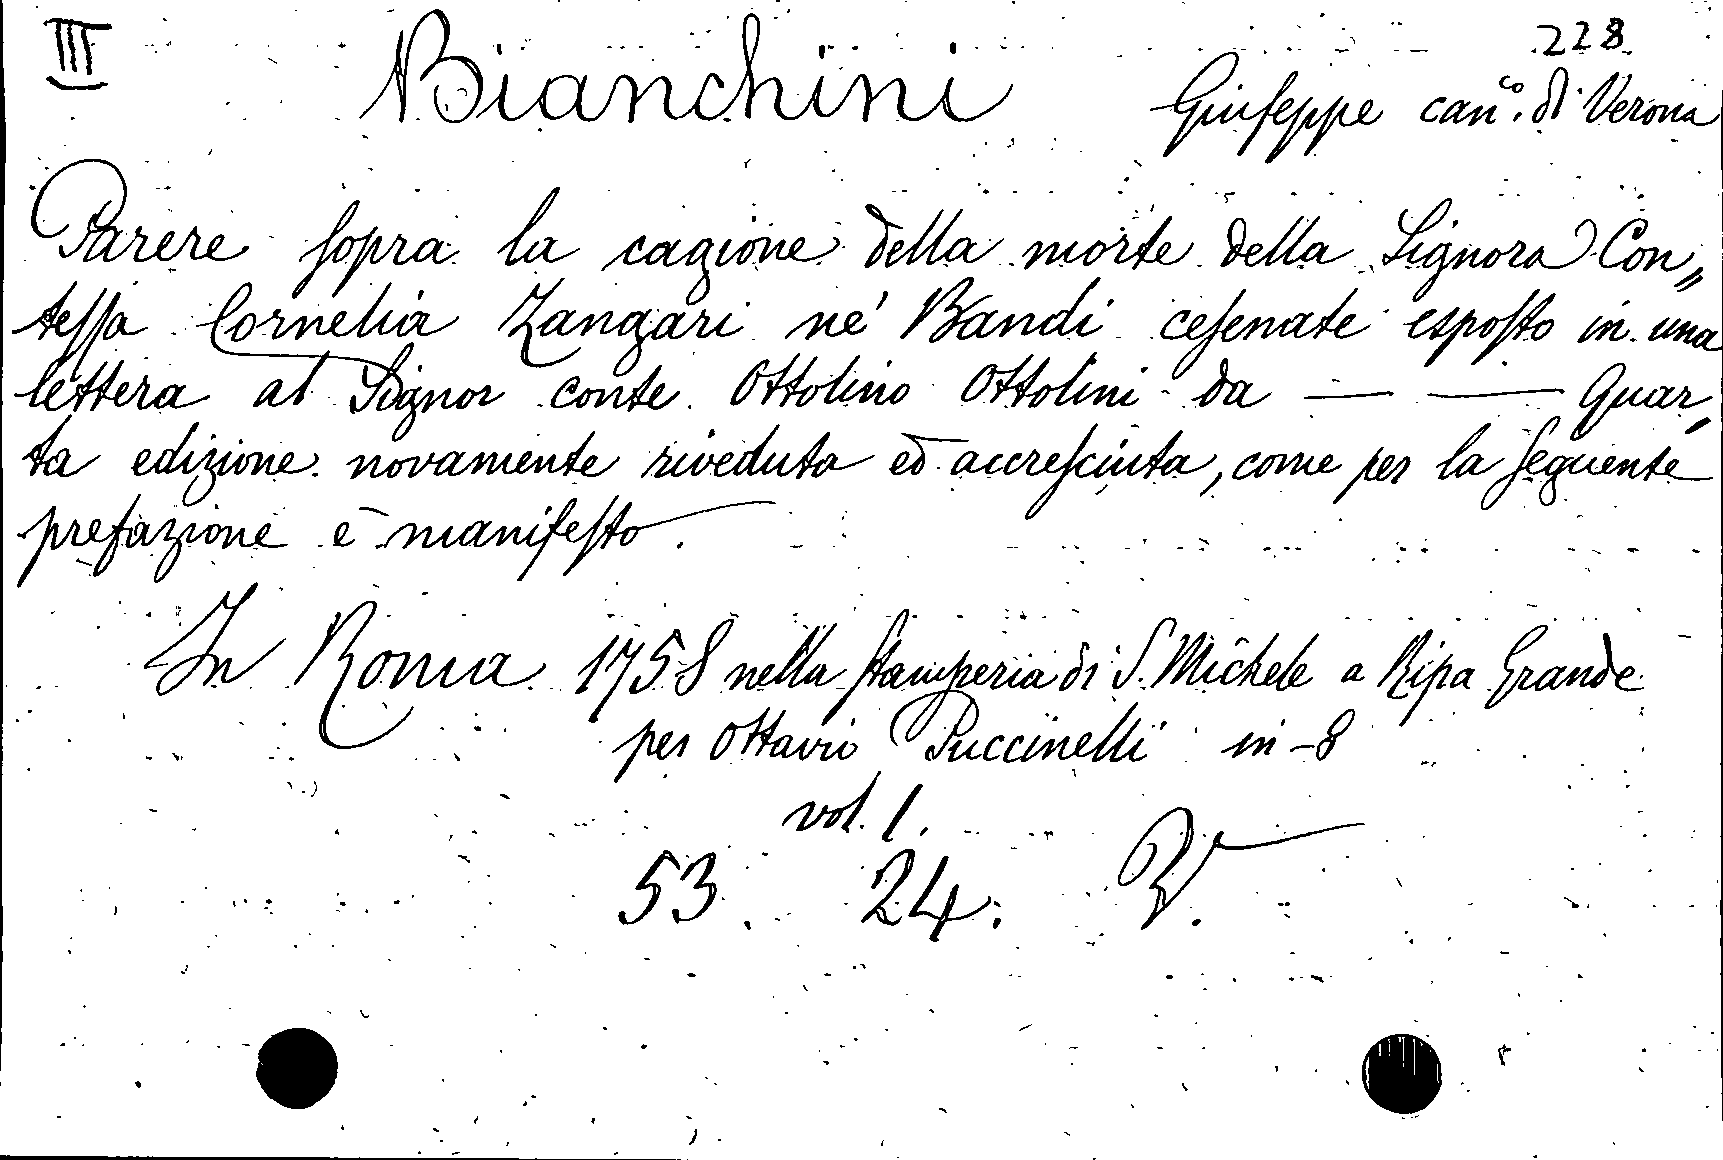 III
228
Bianchini
Giuseppe can.co di Verona
Parere sopra la cagione della morte della Signora Con„
tessa Cornelia Zangari ne' Bandi cesenate esposto in una
lettera al Signor conte Ottolino Ottolini da — — Quar„
ta edizione novamente riveduta ed accresciuta, come per la seguente
prefazione è manifesto.
In Roma 1758 nella stamperia di S. Michele a Ripa Grande
per Ottavio Puccinelli in-8
vol. 1.
53. 24.